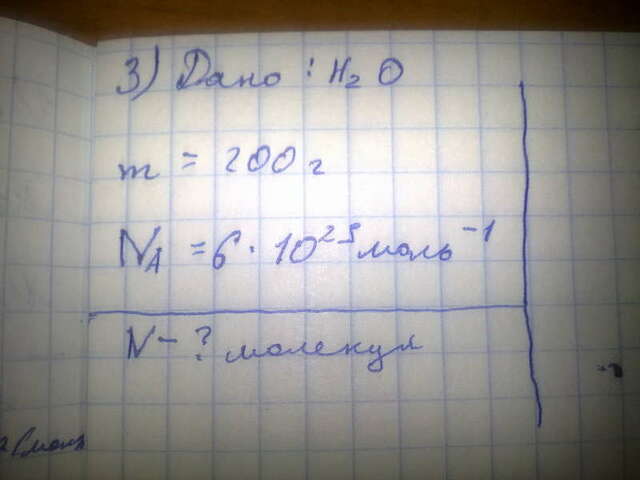 3) Дано: H₂O
m = 200 г
Nₐ = 6 · 10²³ моль⁻¹
N – ? молекул